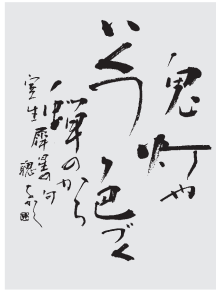 鬼灯や
いくつ色づく
蝉のから
室生犀星の句